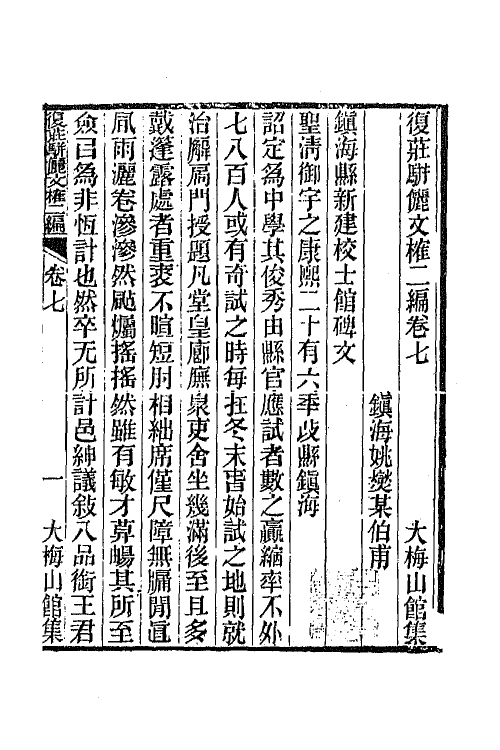 復莊駢儷文榷二編卷七　大梅山館集
鎭海姚燮某伯甫
鎭海縣新建校士館碑文
聖淸御宇之康熙二十有六季改縣鎭海
詔定為中學其俊秀由縣官應試者數之贏縮率不外
七八百人或有奇試之時每在冬末旾始試之地則就
治廨扃門授題凡堂皇廊廡泉吏舍坐幾滿後至且多
戴蓬露處者重裘不暄短肘相絀席僅尺障無牖閒眞
風雨灑卷滲滲然颭爥搖搖然雖有敏才莫暢其所至
僉曰為非恆計也然卒无所計邑紳議敍八品銜王君
復莊駢儷文榷二編　卷七　一　大梅山館集